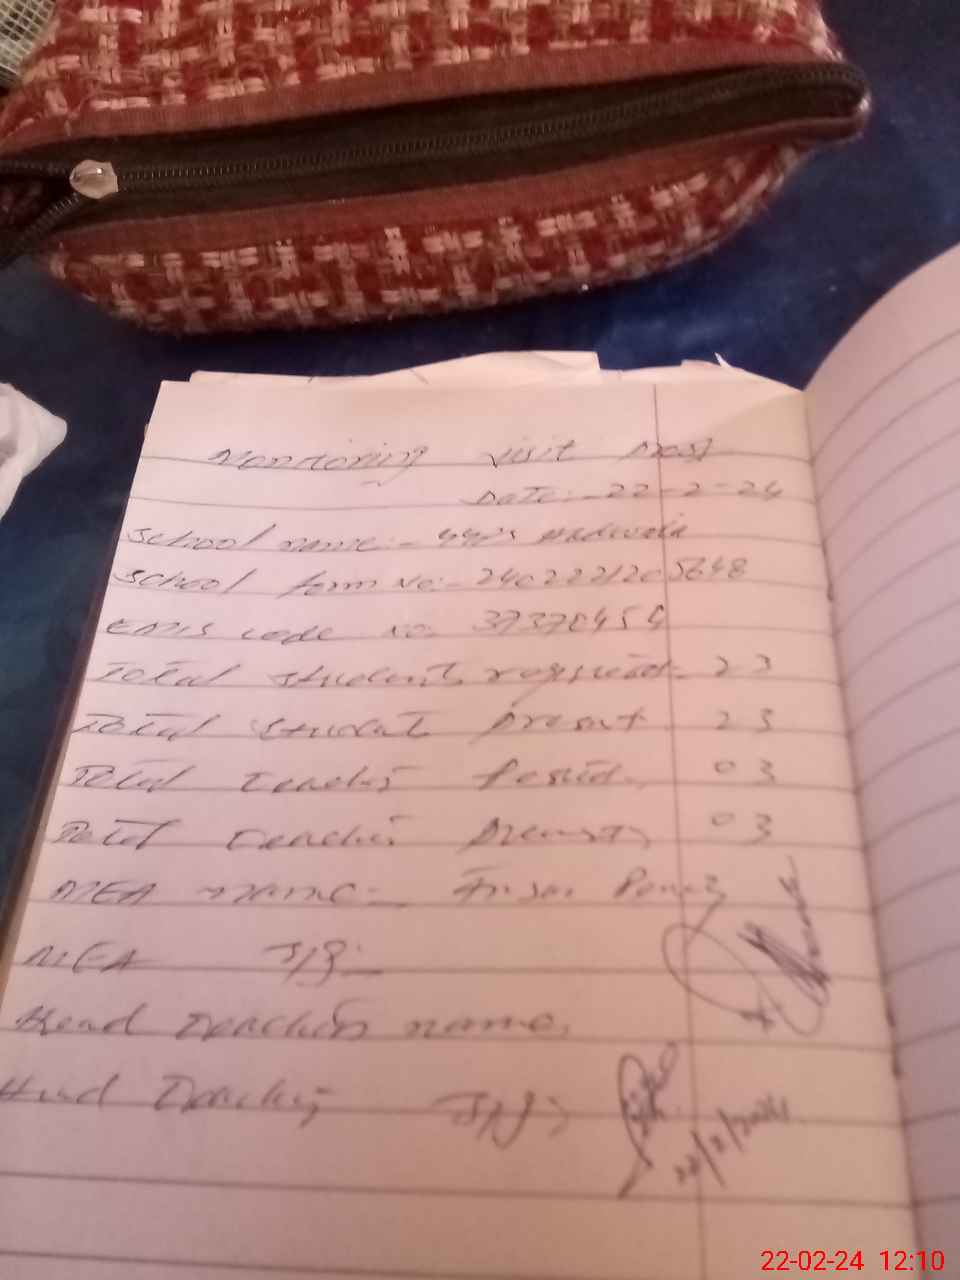 Monitoring visit
Date:- 22-2-24
School name:- GGPS
School form No:- 2402221205648
EMIS code no: 37370454
Total student registered. 23
Total student present 23
Total Teacher Posted. 03
Total Teacher Present, 03
MEA name:-
MEA Sig:-
Head Teacher name.
Head Teacher Sig:
22/2/2024
22-02-24 12:10